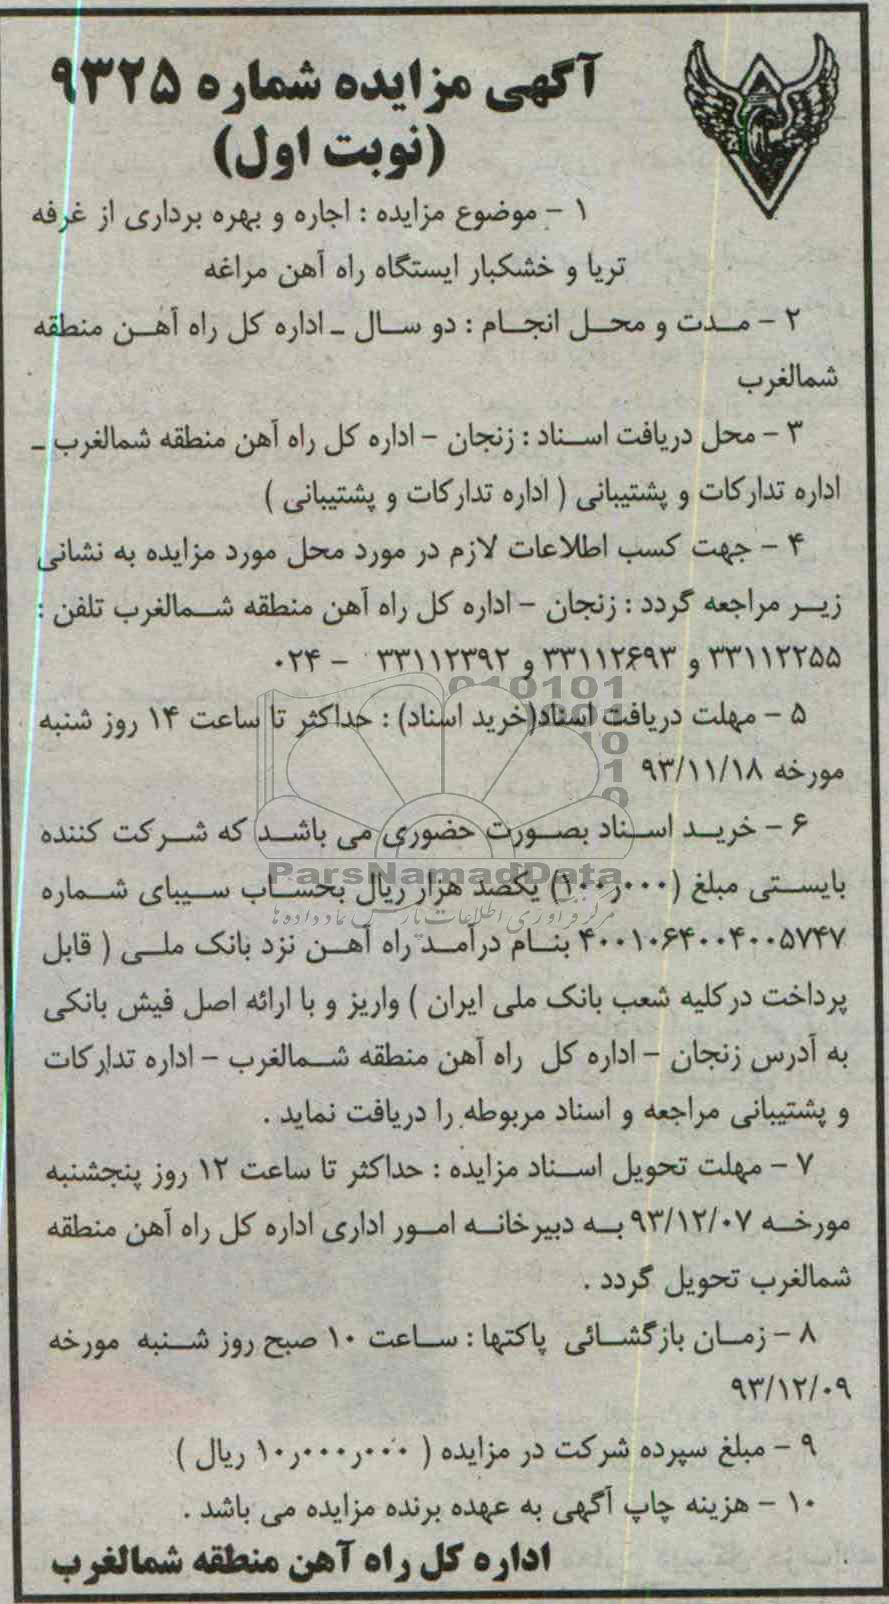 آگهی مزایده شماره ۹۳۲۵
(نوبت اول)
۱ - موضوع مزایده : اجاره و بهره برداری از غرفه
تریا و خشکبار ایستگاه راه آهن مراغه
۲ - مدت و محل انجام : دو سال - اداره کل راه آهن منطقه
شمالغرب
۳ - محل دریافت اسناد : زنجان - اداره کل راه آهن منطقه شمالغرب -
اداره تدارکات و پشتیبانی ( اداره تدارکات و پشتیبانی )
۴ - جهت کسب اطلاعات لازم در مورد محل مورد مزایده به نشانی
زیر مراجعه گردد : زنجان - اداره کل راه آهن منطقه شمالغرب تلفن :
۳۳۱۱۲۲۵۵ و ۳۳۱۱۲۶۹۳ و ۳۳۱۱۲۳۹۲ - ۰۲۴
۵ - مهلت دریافت اسناد(خرید اسناد) : حداکثر تا ساعت ۱۴ روز شنبه
مورخه ۹۳/۱۱/۱۸
۶ - خرید اسناد بصورت حضوری می باشد که شرکت کننده
بایستی مبلغ (۱۰۰٫۰۰۰) یکصد هزار ریال بحساب سیبای شماره
۴۰۰۱۰۶۴۰۰۴۰۰۵۷۴۷ بنام درآمد راه آهن نزد بانک ملی ( قابل
پرداخت درکلیه شعب بانک ملی ایران ) واریز و با ارائه اصل فیش بانکی
به آدرس زنجان - اداره کل راه آهن منطقه شمالغرب - اداره تدارکات
و پشتیبانی مراجعه و اسناد مربوطه را دریافت نماید .
۷ - مهلت تحویل اسناد مزایده : حداکثر تا ساعت ۱۲ روز پنجشنبه
مورخه ۹۳/۱۲/۰۷ به دبیرخانه امور اداری اداره کل راه آهن منطقه
شمالغرب تحویل گردد .
۸ - زمان بازگشائی پاکتها : ساعت ۱۰ صبح روز شنبه مورخه
۹۳/۱۲/۰۹
۹ - مبلغ سپرده شرکت در مزایده ( ۱۰٫۰۰۰٫۰۰۰ ریال )
۱۰ - هزینه چاپ آگهی به عهده برنده مزایده می باشد .
اداره کل راه آهن منطقه شمالغرب
ParsNamadData